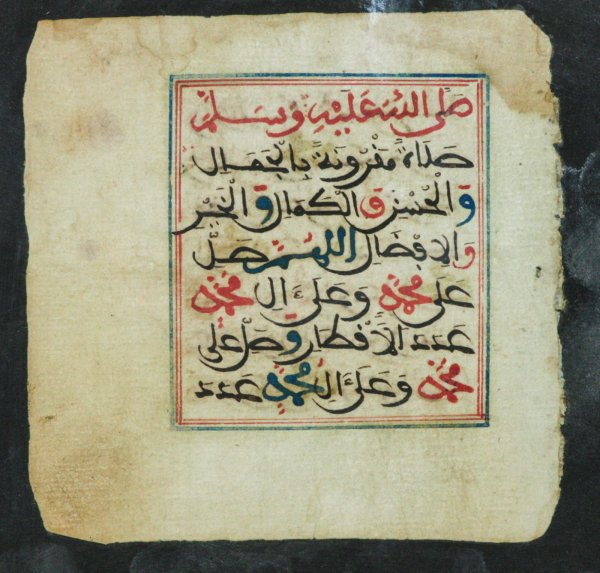 صَلَّى اللهُ عَلَيْهِ وَسَلَّمَ
صَلَاةً مَقْرُونَةً بِالْجَمَالِ
وَالْحُسْنِ وَالْكَمَالِ وَالْخَيْرِ
وَالِافْضَالِ اللَّهُمَّ صَلِّ
عَلَى مُحَمَّدٍ وَعَلَى ءَالِ مُحَمَّدٍ
عَدَدَ الَأقْطَارِ وَصَلِّ عَلَى
مُحَمَّدٍ وَعَلَى ءَالِ مُحَمَّدٍ عَدَدَ